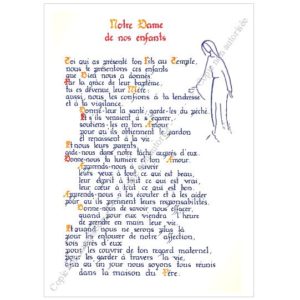 Notre Dame
de nos enfants
Toi qui as présenté ton Fils au Temple,
nous te présentons ces enfants
que Dieu nous a donnés
Par la grâce de leur baptême,
tu es devenue leur Mère :
aussi, nous les confions à ta tendresse
et à ta vigilance.
Donne-leur la santé, garde-les du péché.
Et s'ils venaient à s'égarer,
soutiens-les en ton Amour
pour qu'ils obtiennent le pardon
et renaissent à la vie.
Et nous leurs parents,
aide-nous dans notre tâche auprès d'eux.
Donne-nous la lumière et ton Amour
Apprends-nous à ouvrir
leurs yeux à tout ce qui est beau,
leur esprit à tout ce qui est vrai,
leur cœur à tout ce qui est bon.
Apprends-nous à les écouter et à les aider
pour qu'ils prennent leurs responsabilités.
Donne-nous de savoir nous effacer,
quand pour eux viendra l'heure
de prendre en main leur vie.
Et quand nous ne serons plus là
pour les entourer de notre affection,
sois près d'eux
pour les couvrir de ton regard maternel,
pour les garder à travers la vie,
afin qu'un jour nous soyons tous réunis
dans la maison du Père.